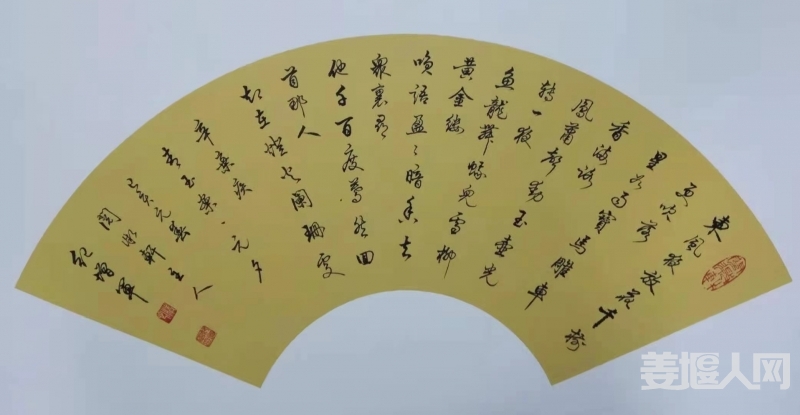 東風夜放花千樹
更吹落
星如雨寶馬雕車
香滿路
鳳簫聲動玉壺光
轉一夜
魚龍舞蛾兒雪柳
黃金縷
咲語盈〻暗香去
眾裏尋
他千百度驀然回
首那人
却在燈火闌珊處
辛棄疾·元夕
青玉案
己亥元春
軒主人
姜堰人网